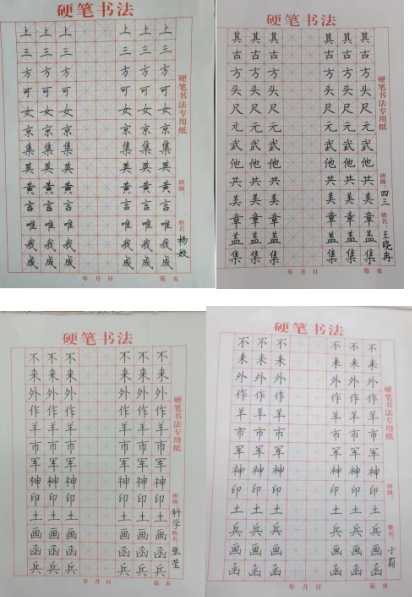 硬笔书法
硬笔书法专用纸 班级 姓名 杨姣
上三方可女京集英黄言唯我威
上三方可女京集英黄言唯我威
上三方可女京集英黄言唯我威
上三方可女京集英黄言唯我威
上三方可女京集英黄言唯我威
上三方可女京集英黄言唯我威
年 月 日 第 页
硬笔书法
硬笔书法专用纸 班级 四三 姓名 王晓冉
其古方头尺元武他共美章盖集
其古方头尺元武他共美章盖集
其古方头尺元武他共美章盖集
其古方头尺元武他共美章盖集
其古方头尺元武他共美章盖集
其古方头尺元武他共美章盖集
年 月 日 第 页
硬笔书法
硬笔书法专用纸 班级 科学 姓名 张莹
不来外作羊市军神印土画函兵
不来外作羊市军神印土画函兵
不来外作羊市军神印土画函兵
不来外作羊市军神印土画函兵
不来外作羊市军神印土画函兵
不来外作羊市军神印土画函兵
年 月 日 第 页
硬笔书法
硬笔书法专用纸 班级 姓名
不来外作羊市军神印土兵画函
不来外作羊市军神印土兵画函
不来外作羊市军神印土兵画函
不来外作羊市军神印土兵画函
不来外作羊市军神印土兵画函
不来外作羊市军神印土兵画函
年 月 日 第 页